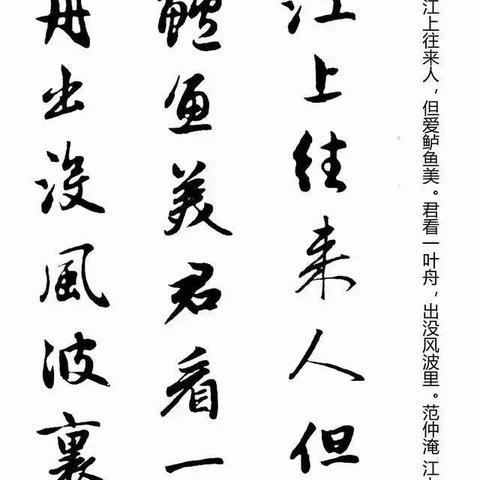 江上往来人，但爱鲈鱼美。君看一叶舟，出没风波里。范仲淹 江
江上往来人但
鱸魚美君看一
舟出没風波裏